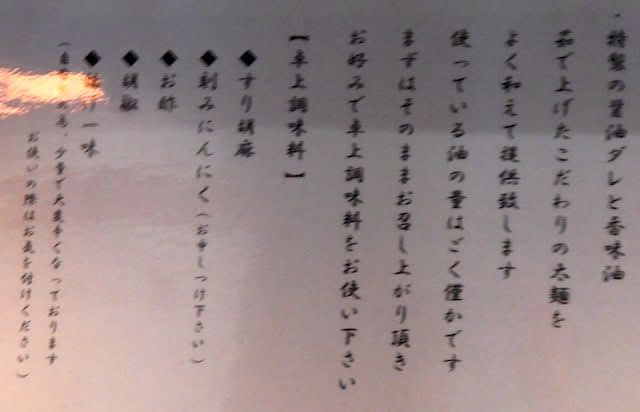 ・特製の醤油ダレと香味油
茹で上げたこだわりの太麺を
よく和えて提供致します
使っている油の量はごく僅かです
まずはそのままお召し上がり頂き
お好みで卓上調味料をお使い下さい
【卓上調味料】
◆すり胡麻
◆刻みにんにく（お申しつけ下さい）
◆お酢
◆胡椒
◆一味
少量で大変辛くなっております
お使いの際はお気を付けください）